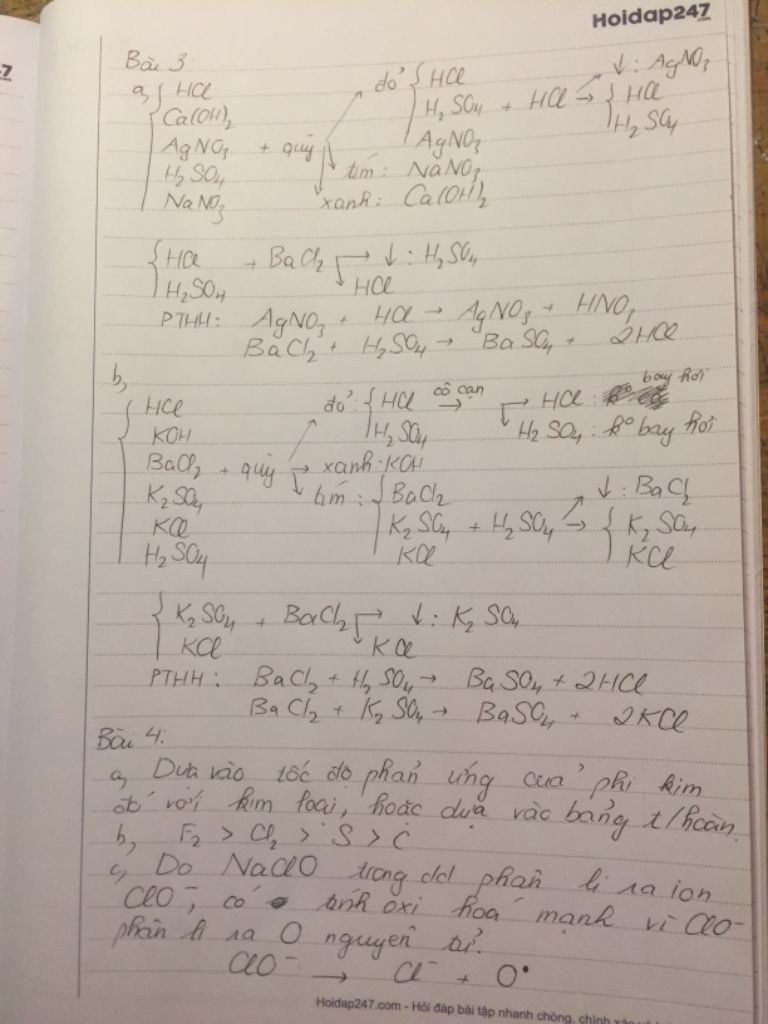 Hoidap247.com
Bài 3
a, { HCl
Ca(OH)₂
AgNO₃ + quỳ
H₂SO₄
NaNO₃
đỏ { HCl
H₂SO₄ + HCl → ↓ : AgNO₃
AgNO₃
{ HCl
H₂SO₄
tím : NaNO₃
xanh : Ca(OH)₂
{ HCl + BaCl₂ → ↓ : H₂SO₄
H₂SO₄ ↓ HCl
PTHH : AgNO₃ + HCl → AgNO₃ + HNO₃
BaCl₂ + H₂SO₄ → BaSO₄ + 2HCl
b,
{ HCl
KOH
BaCl₂ + quỳ
K₂SO₄
KCl
H₂SO₄
đỏ : { HCl cô cạn → HCl : bay hơi
H₂SO₄ H₂SO₄ : k° bay hơi
→ xanh : KOH
tím : { BaCl₂ ↓ : BaCl₂
K₂SO₄ + H₂SO₄ → { K₂SO₄
KCl KCl
{ K₂SO₄ + BaCl₂ → ↓ : K₂SO₄
KCl ↓ KCl
PTHH : BaCl₂ + H₂SO₄ → BaSO₄ + 2HCl
BaCl₂ + K₂SO₄ → BaSO₄ + 2KCl
Bài 4.
a, Dựa vào tốc độ phản ứng của phi kim
đối với kim loại, hoặc dựa vào bảng t/hoàn.
b, F₂ > Cl₂ > S > C
c, Do NaClO trong dd phân li ra ion
ClO⁻, có tính oxi hoá mạnh vì ClO⁻
phân li ra O nguyên tử.
ClO⁻ → Cl⁻ + O•
Hoidap247.com - Hỏi đáp bài tập nhanh chóng, chính xác